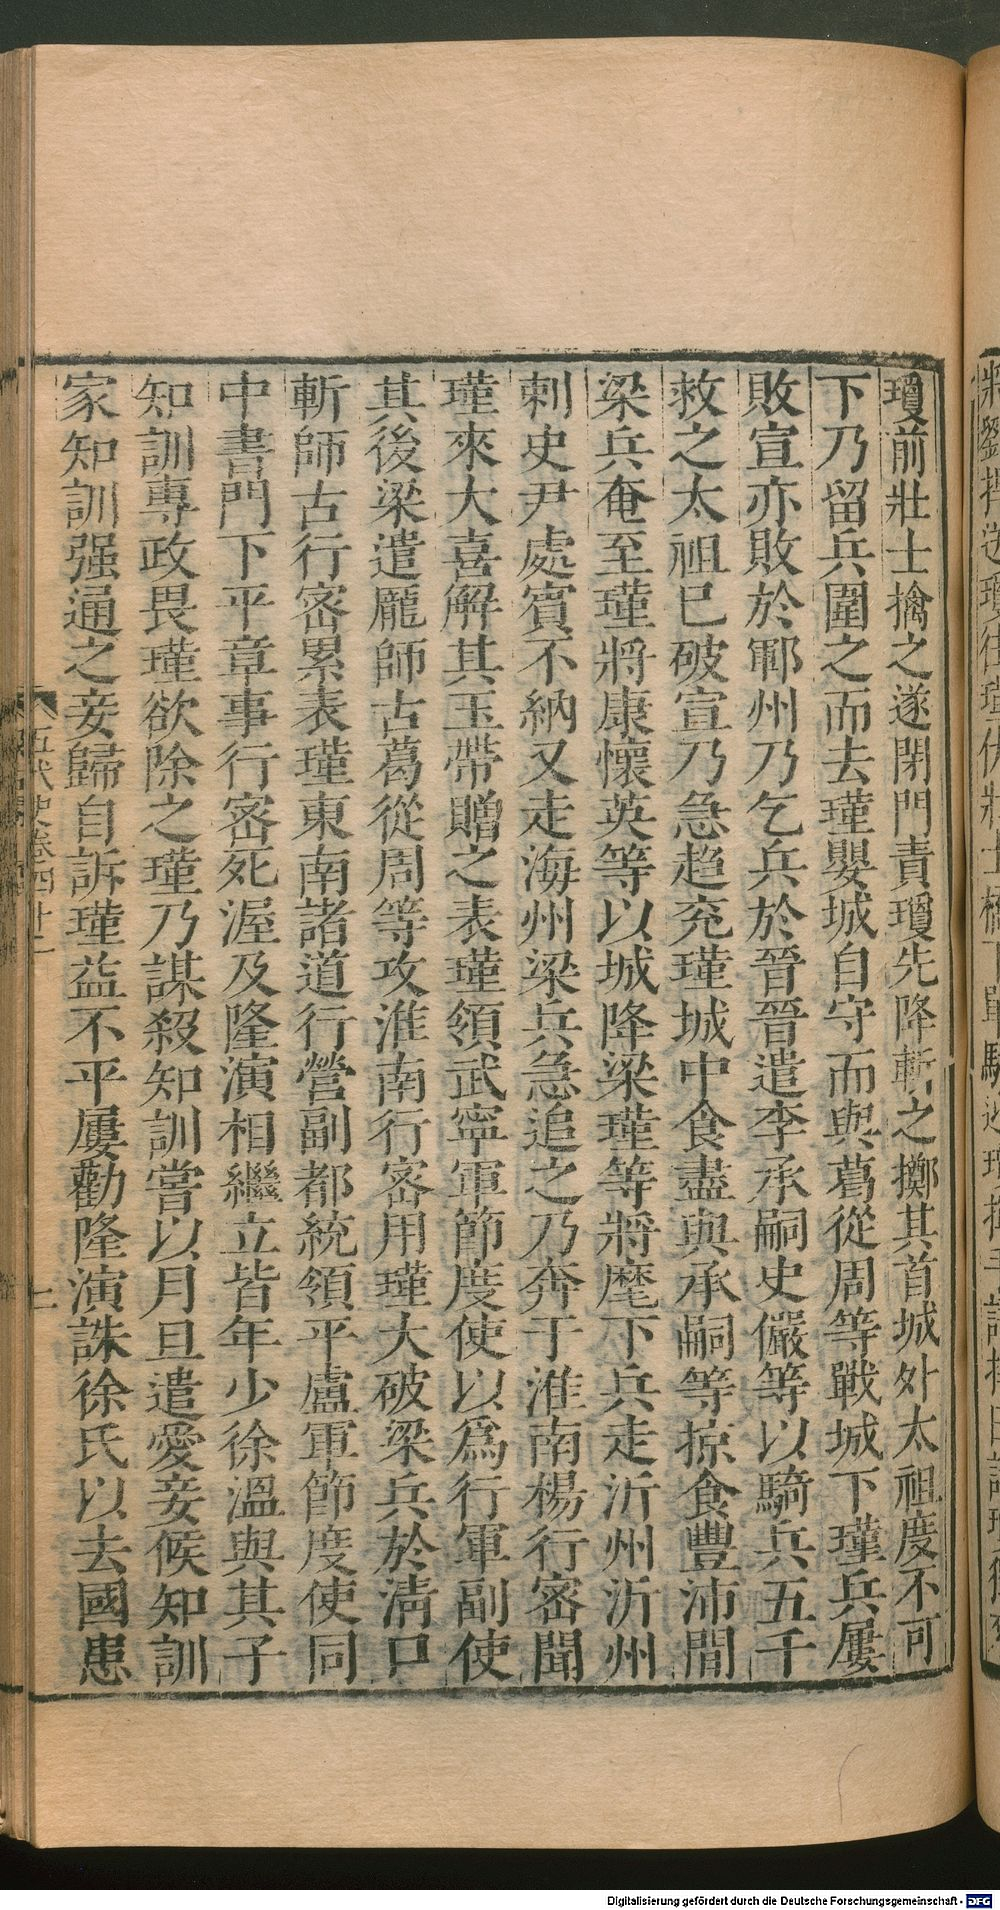 瓊前壯士擒之遂閉門責瓊先降斬之擲其首城外太祖度不可
下乃留兵圍之而去瑾嬰城自守而與葛從周等戰城下瑾兵屢
敗宣亦敗於鄆州乃乞兵於晉晉遣李承嗣史儼等以騎兵五千
救之太祖已破宣乃急趨兖瑾城中食盡與承嗣等掠食豐沛間
梁兵奄至瑾將康懷英等以城降梁瑾等將麾下兵走沂州沂州
刺史尹處賓不納又走海州梁兵急追之乃奔于淮南楊行密聞
瑾來大喜解其玉帶贈之表瑾領武寧軍節度使以爲行軍副使
其後梁遣龐師古葛從周等攻淮南行密用瑾大破梁兵於清口
斬師古行密累表瑾東南諸道行營副都統領平盧軍節度使同
中書門下平章事行密死渥及隆演相繼立皆年少徐溫與其子
知訓專政畏瑾欲除之瑾乃謀殺知訓嘗以月旦遣愛妾候知訓
家知訓强通之妾歸自訴瑾益不平屢勸隆演誅徐氏以去國患
五代史卷四十二
Digitalisierung gefördert durch die Deutsche Forschungsgemeinschaft - DFG